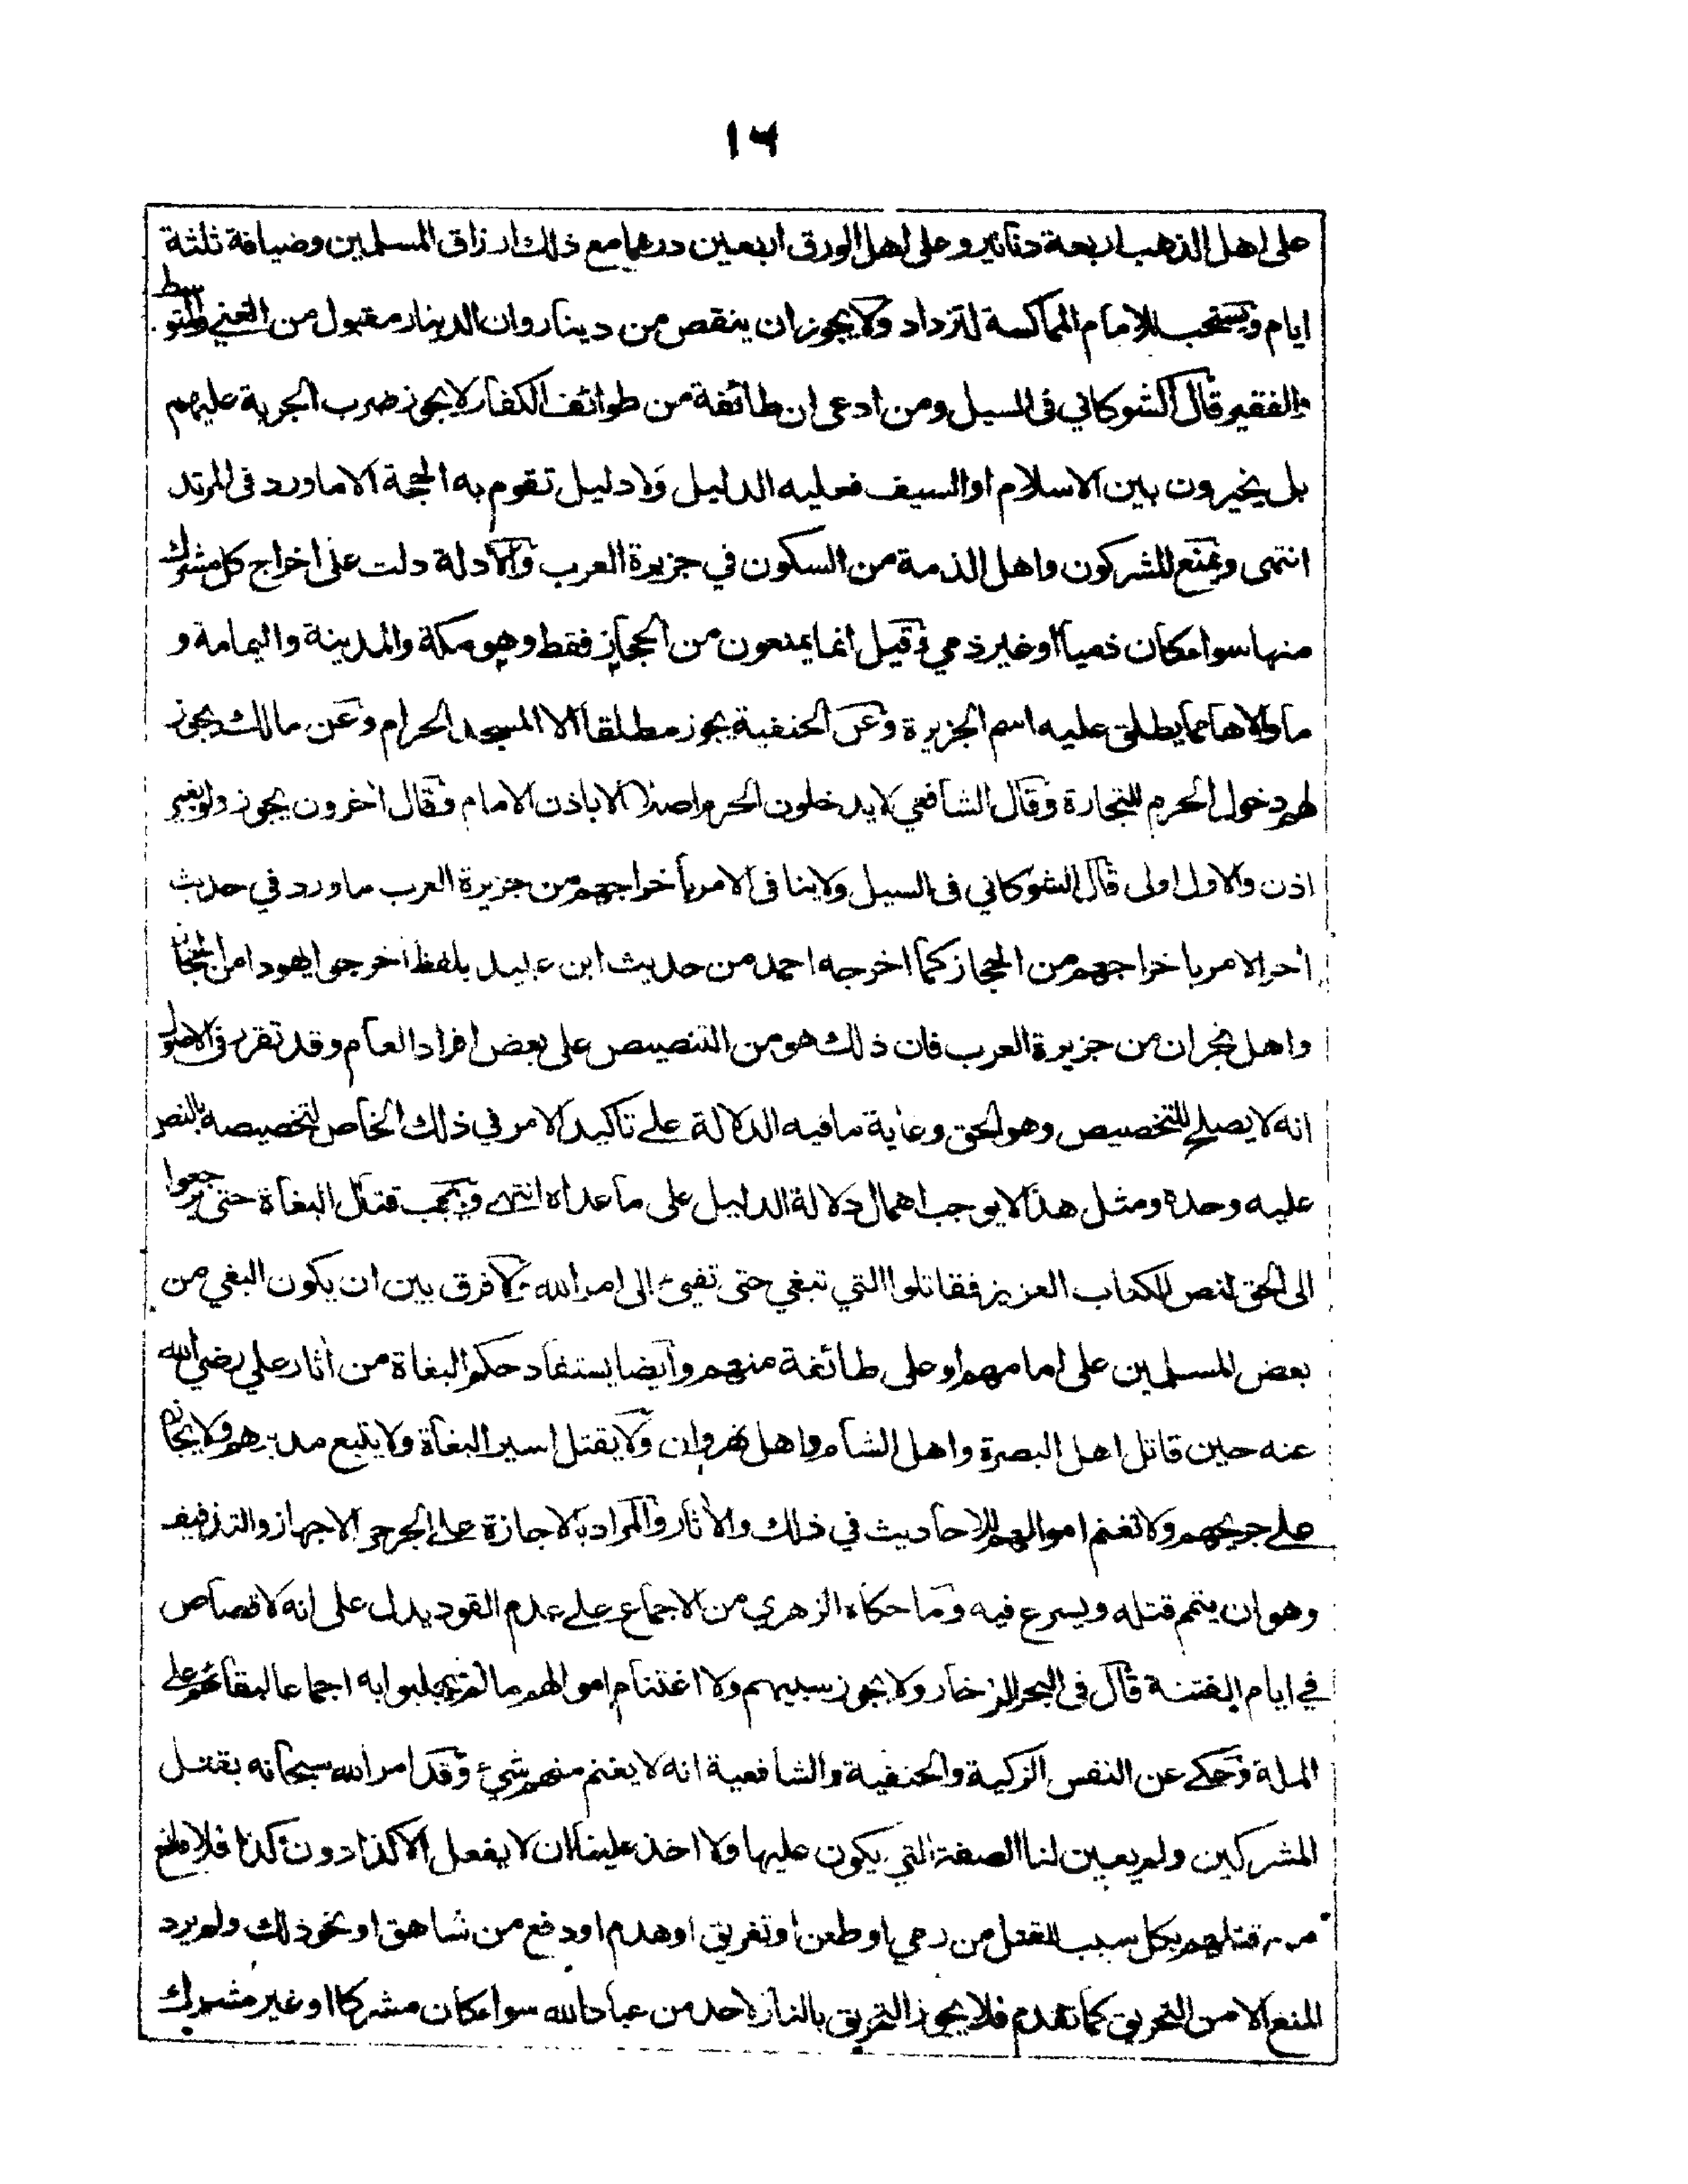 ١٣
على اهل الذهب اربعة دنانير وعلى اهل الورق اربعين درهما مع ذلك ارزاق المسلمين وضيافة ثلثة
ايام ويستحب للامام المماكسة لتزداد ولا يجوز ان ينقص من دينار وان الدينار مقبول من الغني والمتوسط
والفقير قال الشوكاني في السيل ومن ادعى ان طائفة من طوائف الكفار لا يجوز ضرب الجزية عليهم
بل يخيرون بين الاسلام او السيف فعليه الدليل ولا دليل تقوم به الحجة الا ما ورد في المرتد
انتهى ويمنع المشركون واهل الذمة من السكون في جزيرة العرب والادلة دلت على اخراج كل مشرك
منها سواء كان ذميا او غير ذمي وقيل انما يمنعون من الحجاز فقط وهو مكة والمدينة واليمامة و
ما والاها مما يطلق عليه اسم الجزيرة وعن الحنفية يجوز مطلقا الا المسجد الحرام وعن مالك يجوز
لهم دخول الحرم للتجارة وقال الشافعي لا يدخلون الحرم اصلا الا باذن الامام وقال اخرون يجوز ولو بغير
اذن والاول اولى قال الشوكاني في السيل ولا ينافي الامر باخراجهم من جزيرة العرب ما ورد في حديث
اخر الامر باخراجهم من الحجاز كما اخرجه احمد من حديث ابن عبيد بلفظ اخرجوا اليهود من الحجاز
واهل نجران من جزيرة العرب فان ذلك هو من التنصيص على بعض افراد العام وقد تقرر في الاصول
انه لا يصلح للتخصيص وهو الحق وغاية ما فيه الدلالة على تاكيد الامر في ذلك الخاص لتخصيصه بالنص
عليه وحده ومثل هذا لا يوجب اهمال دلالة الدليل على ما عداه انتهى ويجب قتال البغاة حتى يرجعوا
الى الحق لنص الكتاب العزيز فقاتلوا التي تبغي حتى تفيئ الى امر الله ولا فرق بين ان يكون البغي من
بعض المسلمين على امامهم او على طائفة منهم وايضا يستفاد حكم البغاة من اثار علي رضي الله
عنه حين قاتل اهل البصرة واهل الشام واهل نهروان ولا يقتل اسير البغاة ولا يتبع مدبرهم ولا يجاز
على جريحهم ولا تغنم اموالهم للاحاديث في ذلك والاثار والمراد بالاجازة على الجرحى الاجهاز والتذفيف
وهو ان يتم قتله ويسرع فيه وما حكاه الزهري من الاجماع على عدم القود يدل على انه لا قصاص
في ايام الفتنة قال في البحر الزخار ولا يجوز سبيهم ولا اغتنام اموالهم ما لم يجلبوا به اجماعا لبقائهم على
الملة وحكى عن النفس الزكية والحنفية والشافعية انه لا يغنم منهم شيء وقد امر الله سبحانه بقتل
المشركين ولم يعين لنا الصفة التي يكون عليها ولا اخذ علينا ان لا يفعل الا كذا دون كذا فلا مانع
من قتلهم بكل سبب للقتل من رمي او طعن او تغريق او هدم او دفع من شاهق او نحو ذلك ولم يرد
المنع الا من التحريق كما تقدم فلا يجوز التحريق بالنار لاحد من عباد الله سواء كان مشركا او غير مشرك